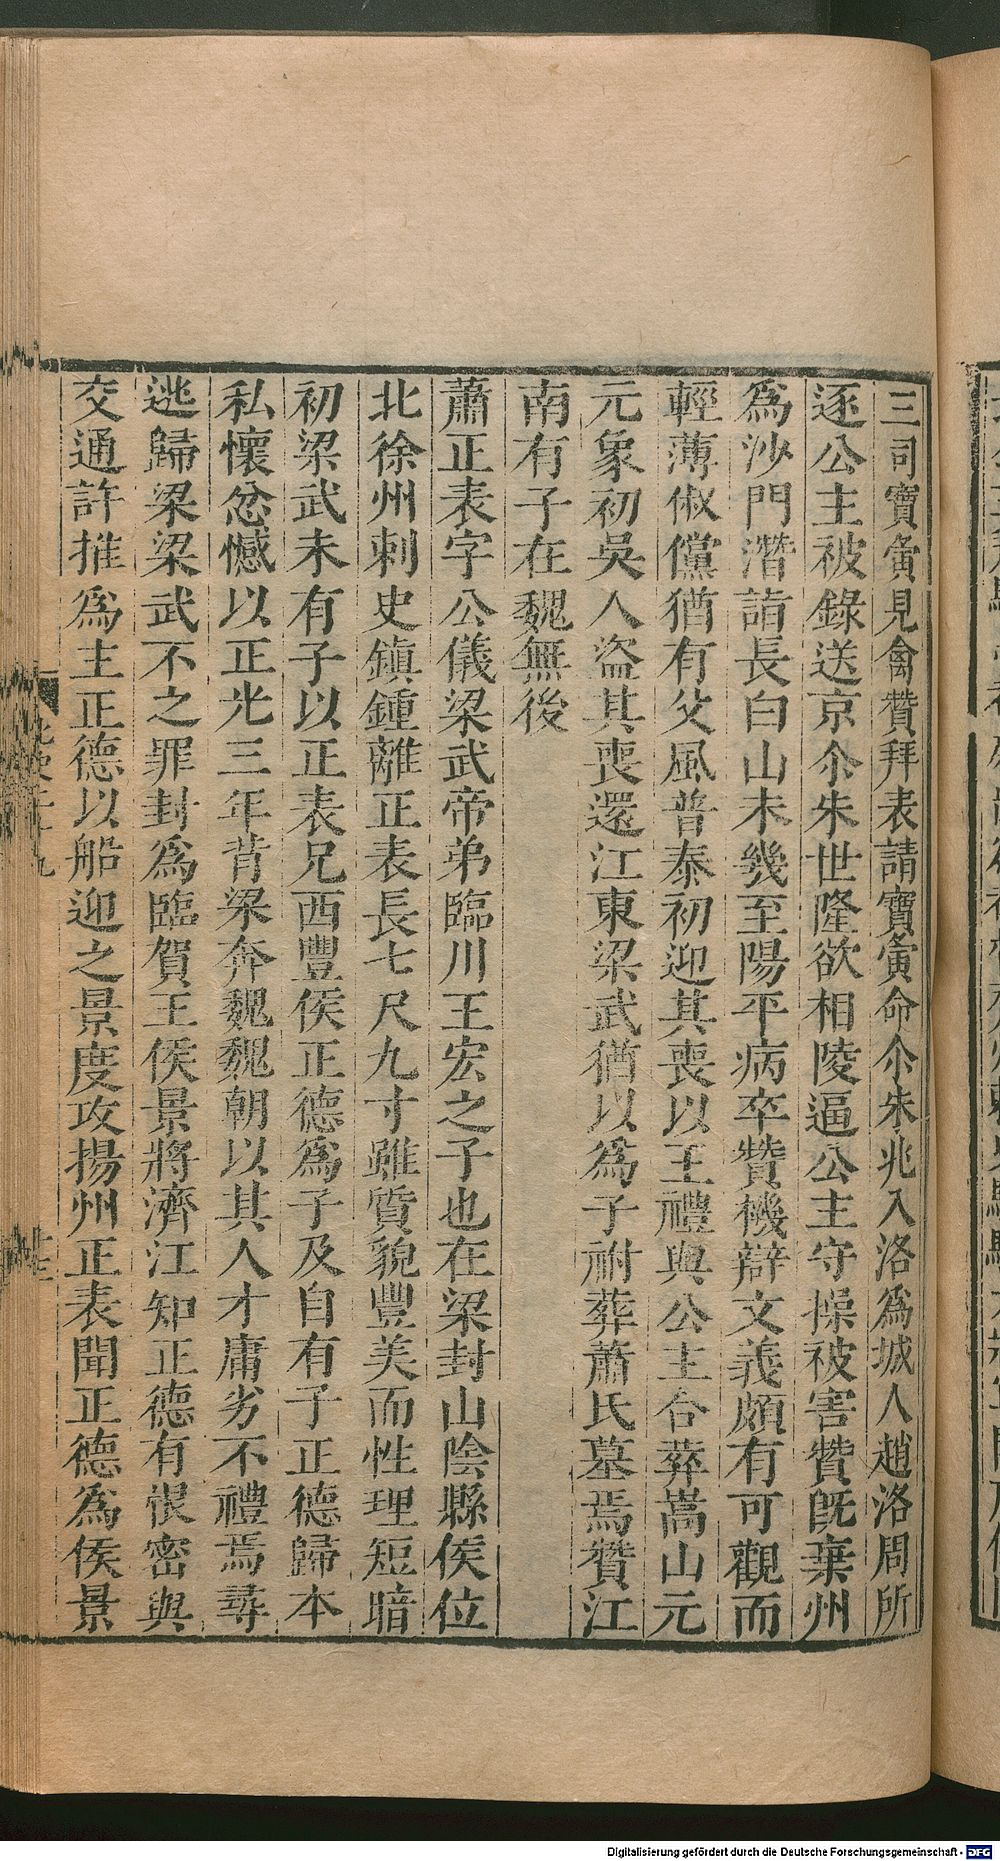 三司寶夤見禽贊拜表請寶夤命尒朱兆入洛爲城人趙洛周所
逐公主被錄送京尒朱世隆欲相陵逼公主守操被害贊旣棄州
爲沙門潛詣長白山未幾至陽平病卒贊機辯文義頗有可觀而
輕薄俶儻猶有父風普泰初迎其喪以王禮與公主合葬嵩山元
元象初吳人盜其喪還江東梁武猶以爲子祔葬蕭氏墓焉贊江
南有子在魏無後
蕭正表字公儀梁武帝弟臨川王宏之子也在梁封山陰縣侯位
北徐州刺史鎮鍾離正表長七尺九寸雖質貌豐美而性理短暗
初梁武未有子以正表兄西豐侯正德爲子及自有子正德歸本
私懷忿憾以正光三年背梁奔魏魏朝以其人才庸劣不禮焉尋
逃歸梁梁武不之罪封爲臨賀王侯景將濟江知正德有恨密與
交通許推爲主正德以船迎之景度攻揚州正表聞正德爲侯景
Digitalisierung gefördert durch die Deutsche Forschungsgemeinschaft - DFG